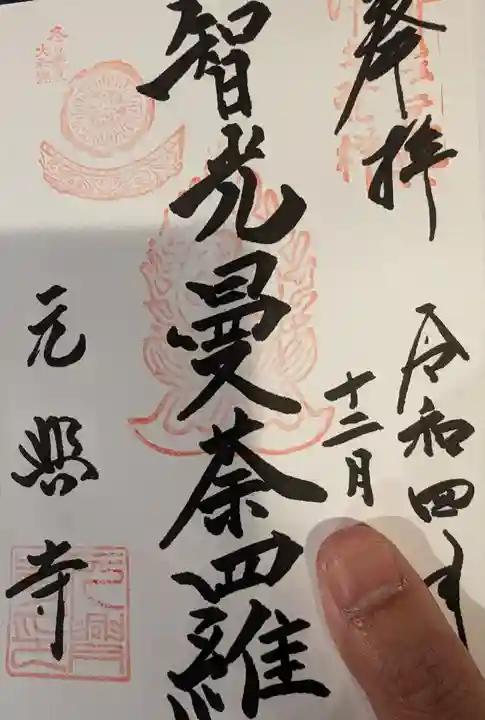 奉拝
令和四年
十二月
智光曼荼羅
元興寺